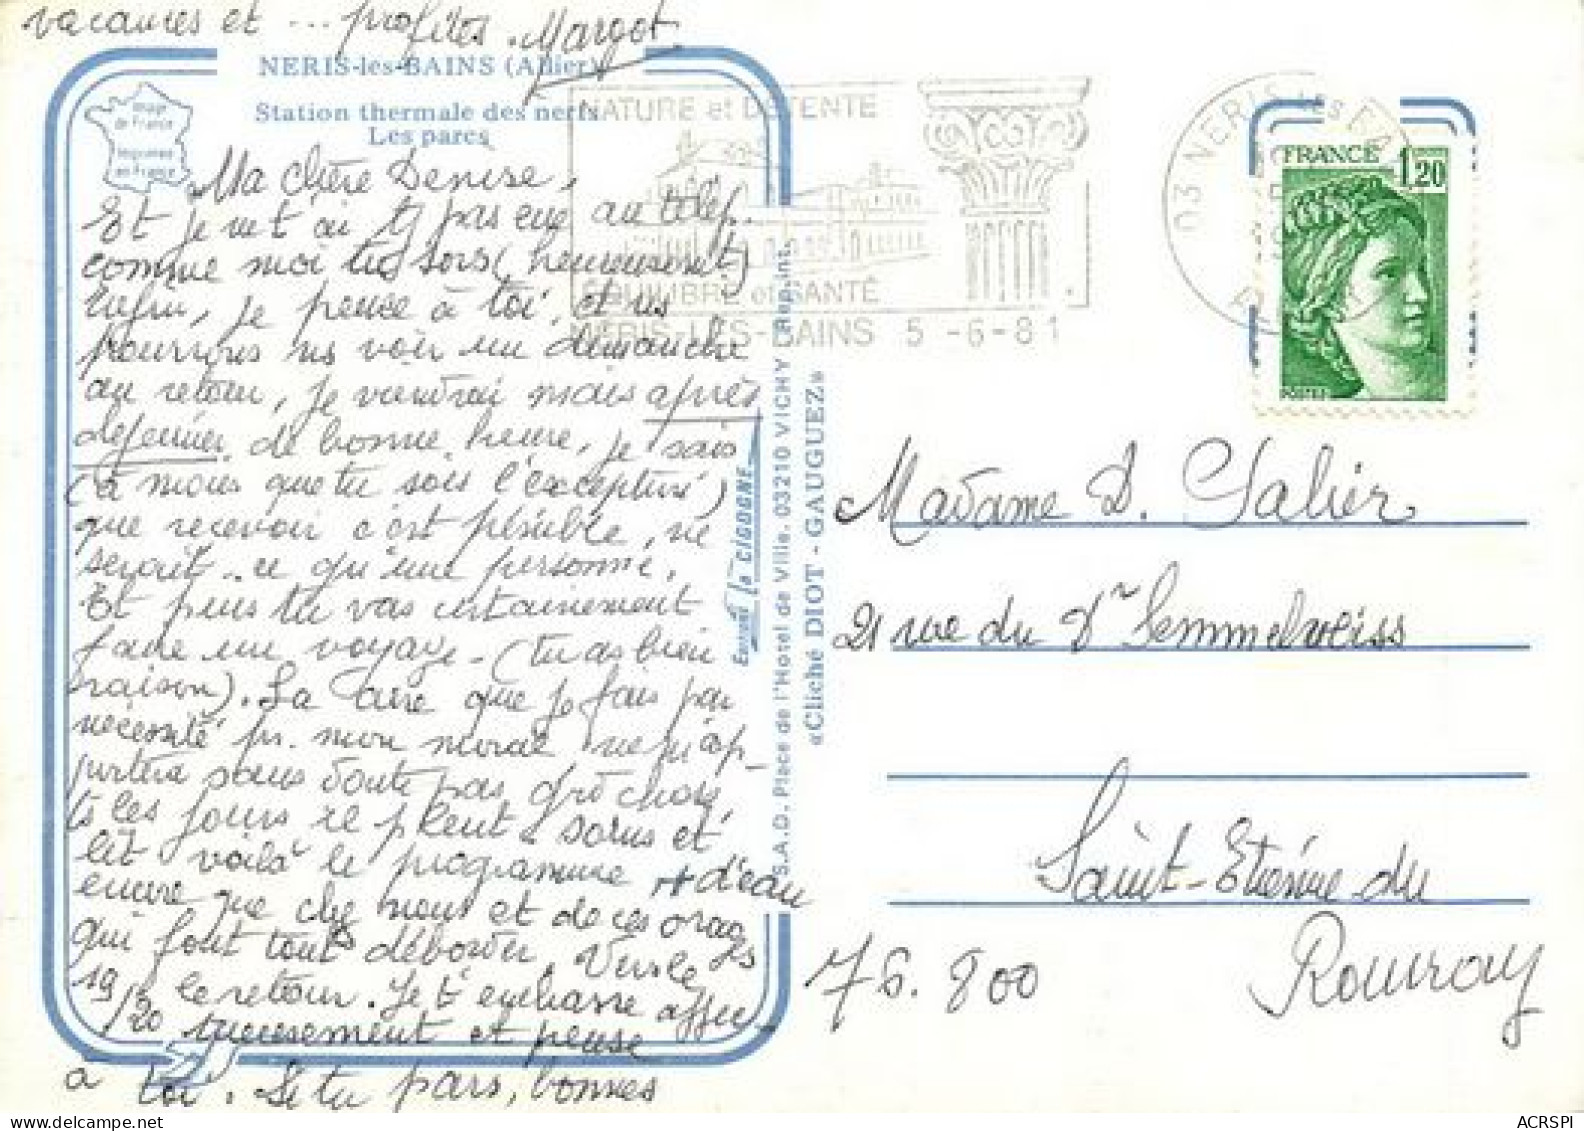 vacances et ... profites. Margot
NERIS-les-BAINS (Allier)
Station thermale des nerfs
Les parcs
Image
de France
Imprimée
en France
Ma chère Denise,
Et je ne t'ai pas eue au télép.
comme moi tu sors (heureusement)
Enfin, je pense à toi, et ns
pourrons ns voir un dimanche
au retour, je viendrai mais après
déjeuner de bonne heure, je sais
(à moins que tu sois l'exception)
que recevoir c'est pénible, ne
serait-ce qu'une personne.
Et puis tu vas certainement
faire un voyage - (tu as bien
raison). La cure que je fais par
nécessité pr. mon moral ne m'ap-
portera sans doute pas grd chose,
ts les jours il pleut à sorus et
voilà le programme
encore que chez nous et de ces orages
d'eau
qui font tout déborder. Vers le
19/20 le retour. Je t'embrasse affec-
tueusement et pense
à toi. Si tu pars, bonnes
NATURE et DÉTENTE
ÉQUILIBRE et SANTÉ
NERIS-LES-BAINS 5 -6-81
03 NERIS LES BAINS
FRANCE 1,20
POSTES
Editions la CIGOGNE
S.A.D. Place de l'Hotel de Ville. 03210 VICHY / Rep. int.
«Cliché DIOT - GAUGUEZ»
Madame D. Salier
21 rue du Dr Semmelweiss
Saint-Etienne du
Rouvray
76.800
ACRSPI